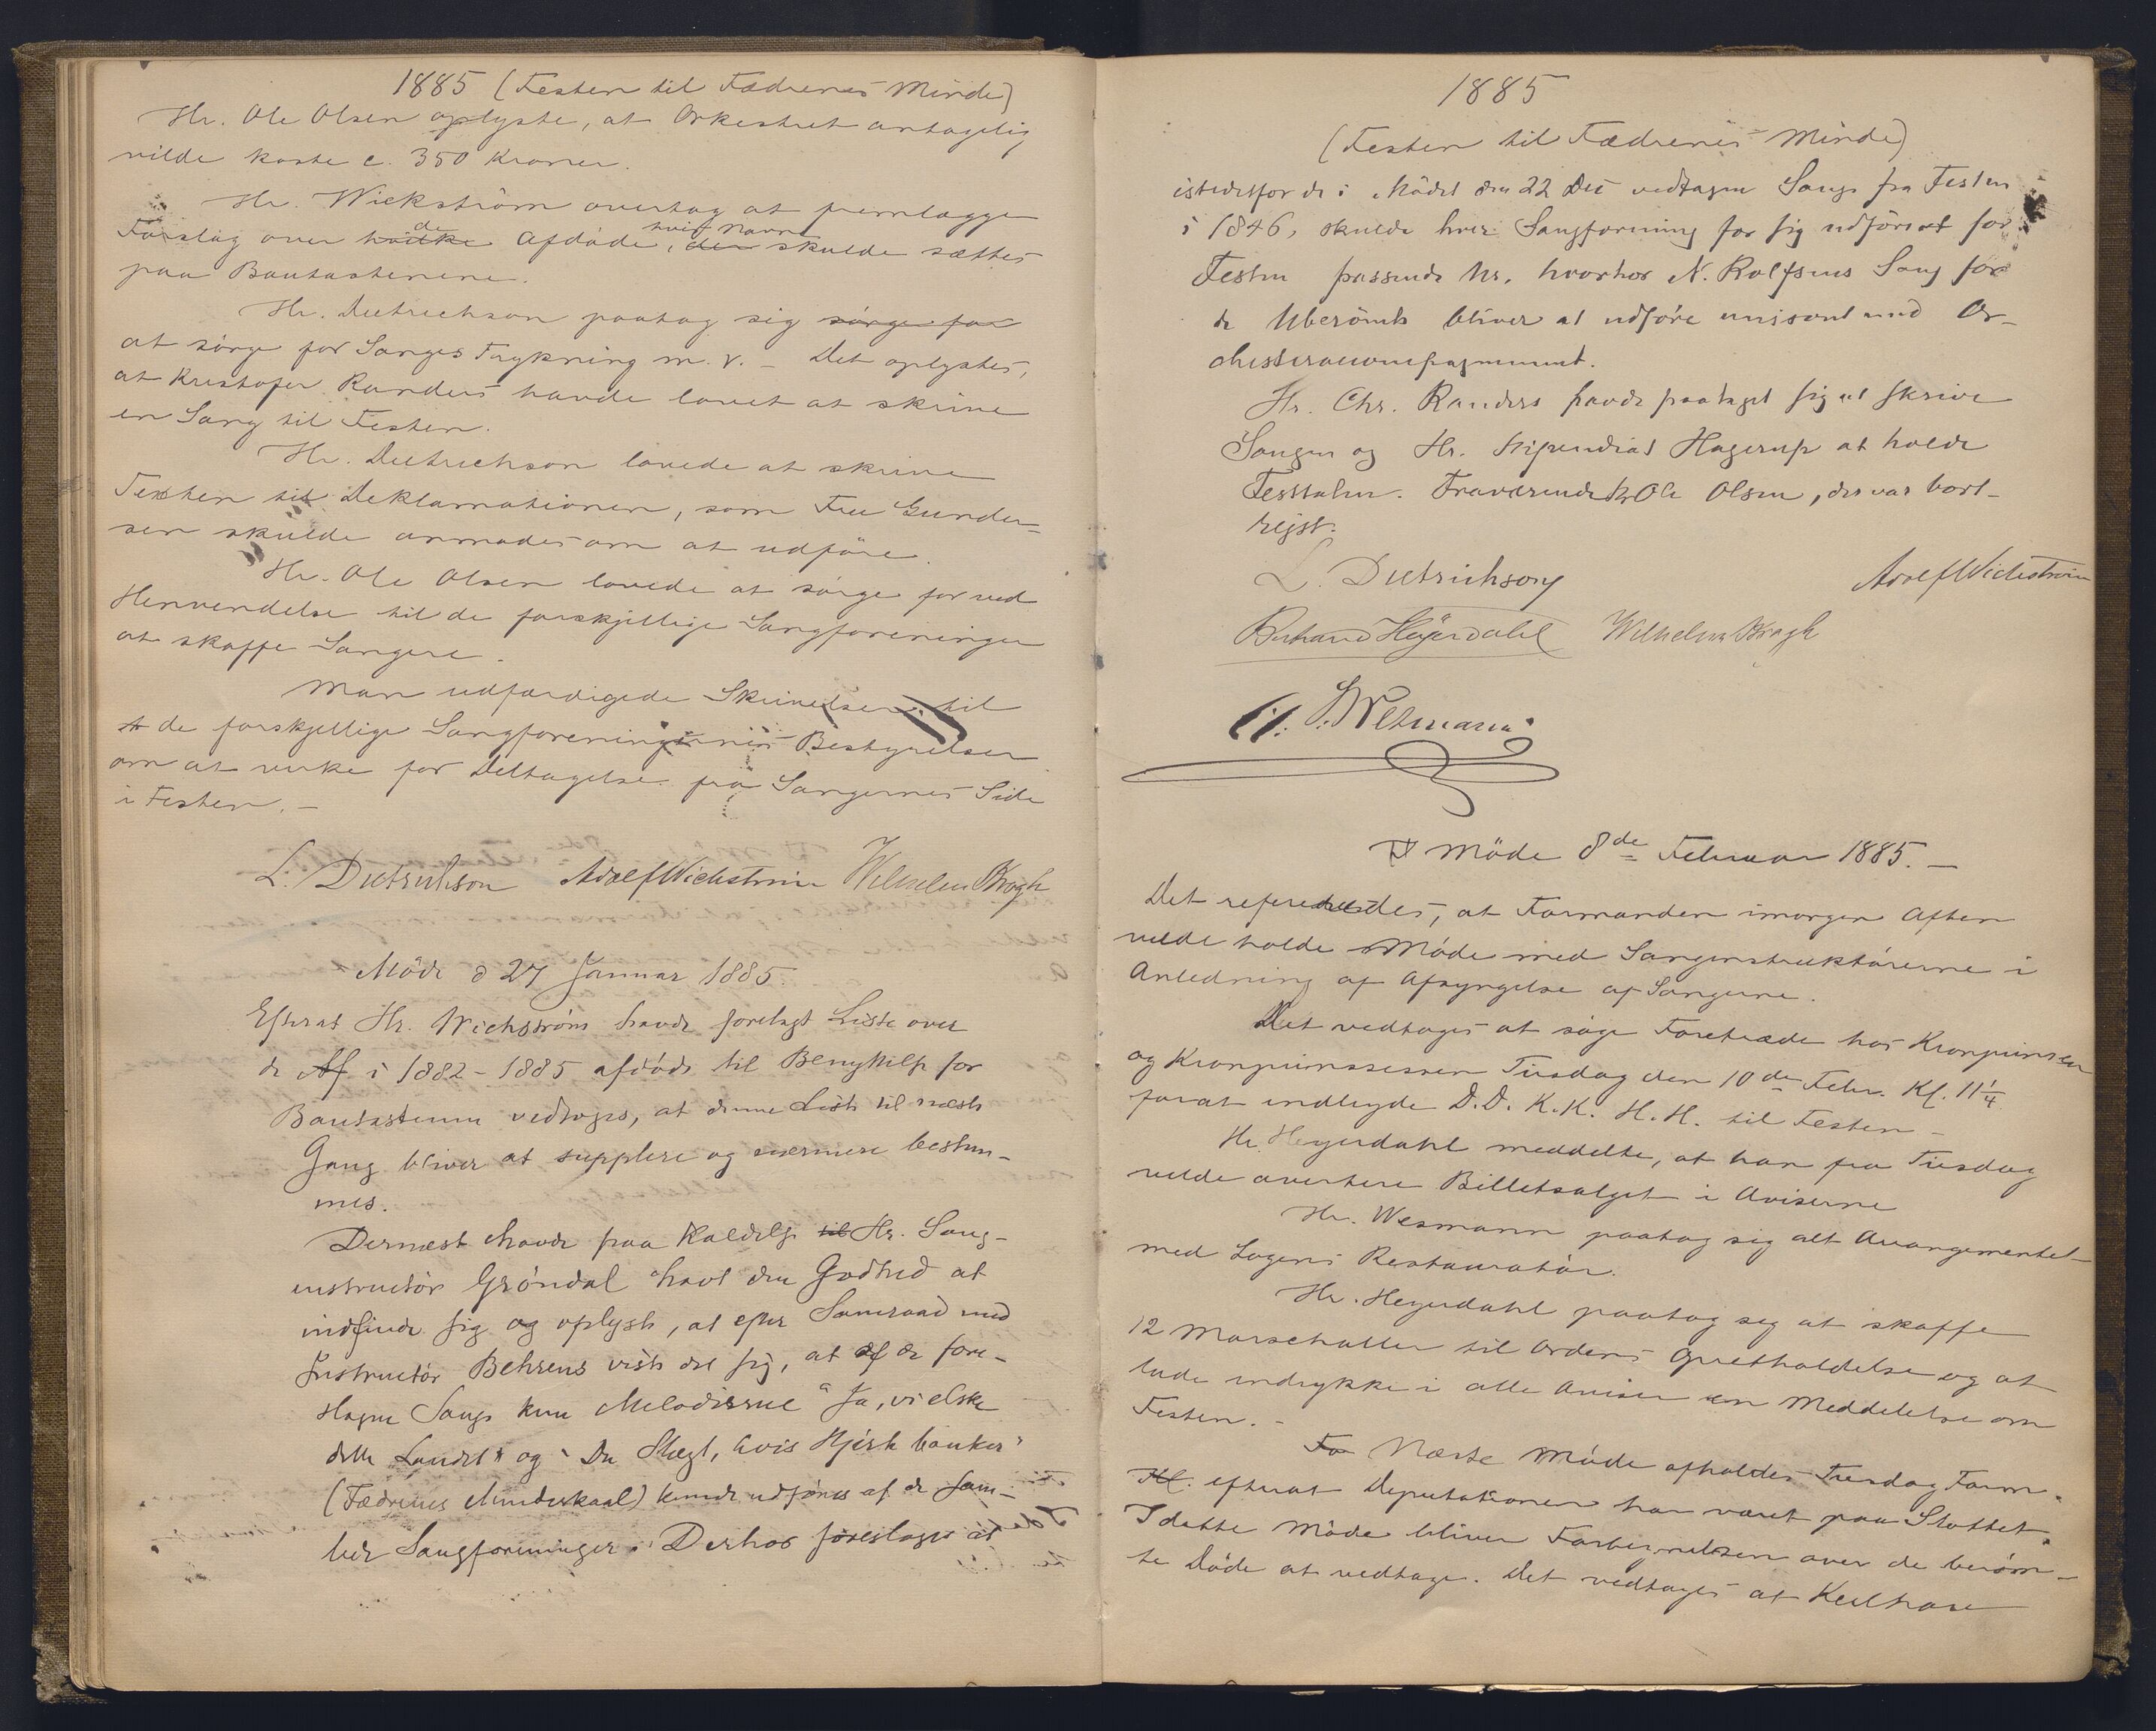 1885 (Festen til Fædrenes Minde)
Hr. Ole Olsen oplyste, at Orkestret antagelig
vilde koste c. 350 Kroner.
Hr. Wickström overtog at fremlægge
Forslag over hvilke de Afdøde, der hvis Navne skulde sættes
paa Bautastenene.
Hr. Dietrichson paatog sig sörge for
at sörge for Sanges Trykning m. v. - Det oplystes,
at Kristofer Randers havde lovet at skrive
en Sang til Festen.
Hr. Dietrichson lovede at skrive
Texten til Deklamationen, som Fru Gunder-
sen skulde anmodes om at udföre.
Hr. Ole Olsen lovede at sörge for ved
Henvendelse til de forskjellige Sangforeninger
at skaffe Sangere.
Man udfærdigede Skrivelser til
de forskjellige Sangforeningers Bestyrelser
om at virke for Deltagelse fra Sangernes Side
i Festen. -
L. Dietrichson Adolf Wichström Wilhelm Kragh
Möde d 27 Januar 1885.
Efterat Hr. Wichström havde forelagt Liste over
de Af i 1882-1885 afdöde til Benyttelse for
Bautastenene vedtoges, at denne Liste til næste
Gang bliver at supplere og nærmere bestem-
mes.
Dernæst havde paa Kaldelse til Hr. Sang-
instructör Gröndal havt den Godhed at
indfinde sig og oplyste, at efter Samraad med
Instructör Behrens viste det sig, at af de fore-
slagne Sange kun Melodierne "Ja, vi elsker
dette Landet" og "Du Slægt, hvis Hjerte banker"
(Fædrenes Mindeskaal) kunde udföres af de sam-
lede Sangforeninger. Derhos foresloges at
1885
(Festen til Fædrenes Minde)
istedetfor de i Mödet den 22 Dec vedtagne Sange fra Festen
i 1846, skulde hver Sangforening for sig udföre et for
Festen passende Nr, hvorhos N. Rolfsens Sang for
de Uberömte bliver at udföre unisont med Or-
chesteraccompagnement.
Hr. Chr. Randers havde paataget sig at skrive
Sangen og Hr. Stipendiat Hagerup at holde
Festtalen. Fraværende Hr Ole Olsen, der var bort-
rejst.
L. Dietrichson Adolf Wichström
Bernhard Heÿerdahl Wilhelm Kragh
Wesmann
Möde 8de Februar 1885. -
Det refereredes, at Formanden imorgen Aften
vilde holde Möde med Sanginstruktörerne i
Anledning af Afsyngelse af Sangene.
Det vedtoges at söge Foretræde hos Kronprinsen
og Kronprinsessen Tirsdag den 10de Febr. Kl. 11 1/4
forat indbyde D.D. K.K. H.H. til Festen -
Hr. Heyerdahl meddelte, at han fra Tirsdag
vilde avertere Billetsalget i Aviserne
Hr. Wesmann paatog sig alt Arrangementet
med Logens Restauratör.
Hr. Heyerdahl paatog sig at skaffe
12 Marschaller til Ordens Opretholdelse og at
lade indrykke i alle Aviser en Meddelelse om
Festen. -
Fo Næste Möde afholdes Tirsdag Form.
Kl. efterat Deputationen har været paa Slottet.
I dette Möde bliver Fortegnelsen over de beröm-
te Döde at vedtage. Det vedtoges at Keilhau